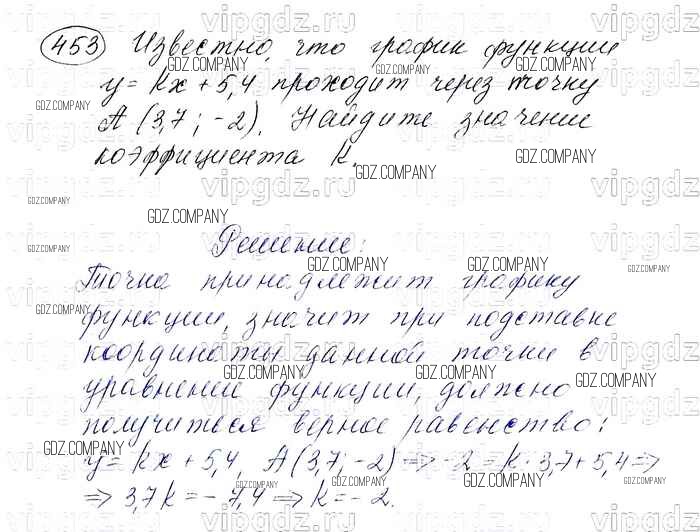 453 Известно, что график функции
y = kx + 5,4 проходит через точку
A (3,7 ; -2). Найдите значение
коэффициента k.
Решение:
Точка принадлежит графику
функции, значит при подставке
координаты данной точки в
уравнений функции, должно
получиться верное равенство:
y = kx + 5,4, A (3,7 ; -2) => -2 = k · 3,7 + 5,4 =>
=> 3,7k = -7,4 => k = -2.